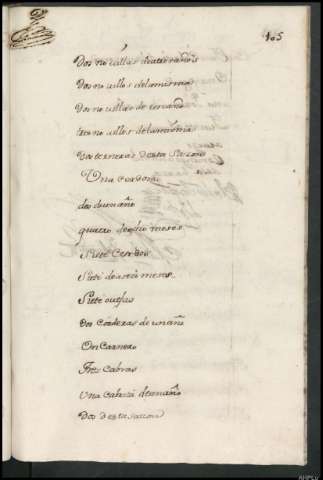 105
Dos novillas de tres años
Dos novillos de la misma
Dos novillas de
tres novillos de la misma
Dos terneras de esta sazon
Una cerdo
dos de un año
quatro de ocho meses
Siete cerdos
Siete de seis meses
Siete ovejas
Dos corderas de un año
Un Carnero
Tres Cabras
Una cabra de un año
Dos de esta sazon
AHPLu